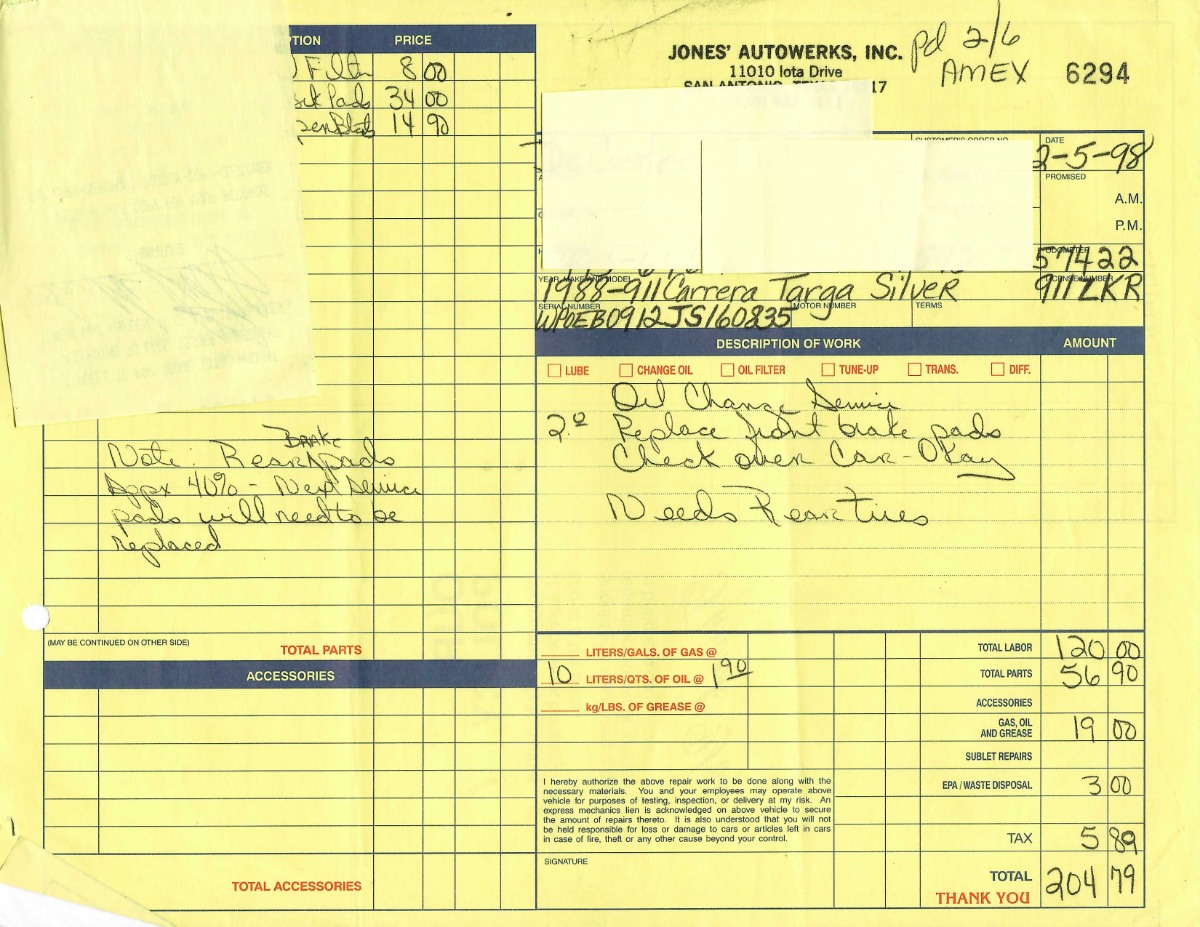 PRICE
8 00
Pads 34 00
14 90
JONES' AUTOWERKS, INC.
11010 Iota Drive
pd 2/6
AMEX
6294
DATE
2-5-98
PROMISED
A.M.
P.M.
57422
YEAR, MAKE AND MODEL
1988-911 Carrera Targa Silver
LICENSE NUMBER
911 ZKR
SERIAL NUMBER
WPOEB0912JS160835
MOTOR NUMBER
TERMS
DESCRIPTION OF WORK AMOUNT
LUBE CHANGE OIL OIL FILTER TUNE-UP TRANS. DIFF.
Oil Change Service
2.0 Replace front brake pads
Check over Car-Okay
Needs Rear Tires
Note: Rear BRAKE pads
Appx 40% - Next Service
pads will need to be
replaced
(MAY BE CONTINUED ON OTHER SIDE) TOTAL PARTS
ACCESSORIES
TOTAL ACCESSORIES
LITERS/GALS. OF GAS @
10 LITERS/QTS. OF OIL @ 1.90
kg/LBS. OF GREASE @
TOTAL LABOR 120 00
TOTAL PARTS 56 90
ACCESSORIES
GAS, OIL
AND GREASE 19 00
SUBLET REPAIRS
EPA / WASTE DISPOSAL 3 00
TAX 5 89
TOTAL 204 79
THANK YOU
I hereby authorize the above repair work to be done along with the
necessary materials. You and your employees may operate above
vehicle for purposes of testing, inspection, or delivery at my risk. An
express mechanics lien is acknowledged on above vehicle to secure
the amount of repairs thereto. It is also understood that you will not
be held responsible for loss or damage to cars or articles left in cars
in case of fire, theft or any other cause beyond your control.
SIGNATURE